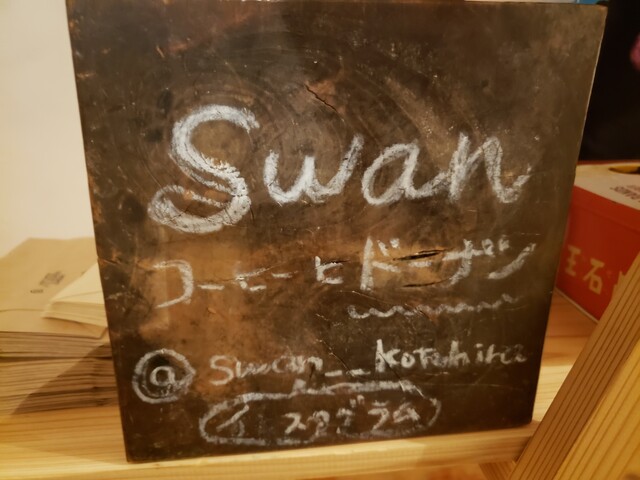 Swan
コーヒーとドーナツ
@swan__kotohira
インスタグラム
玉石